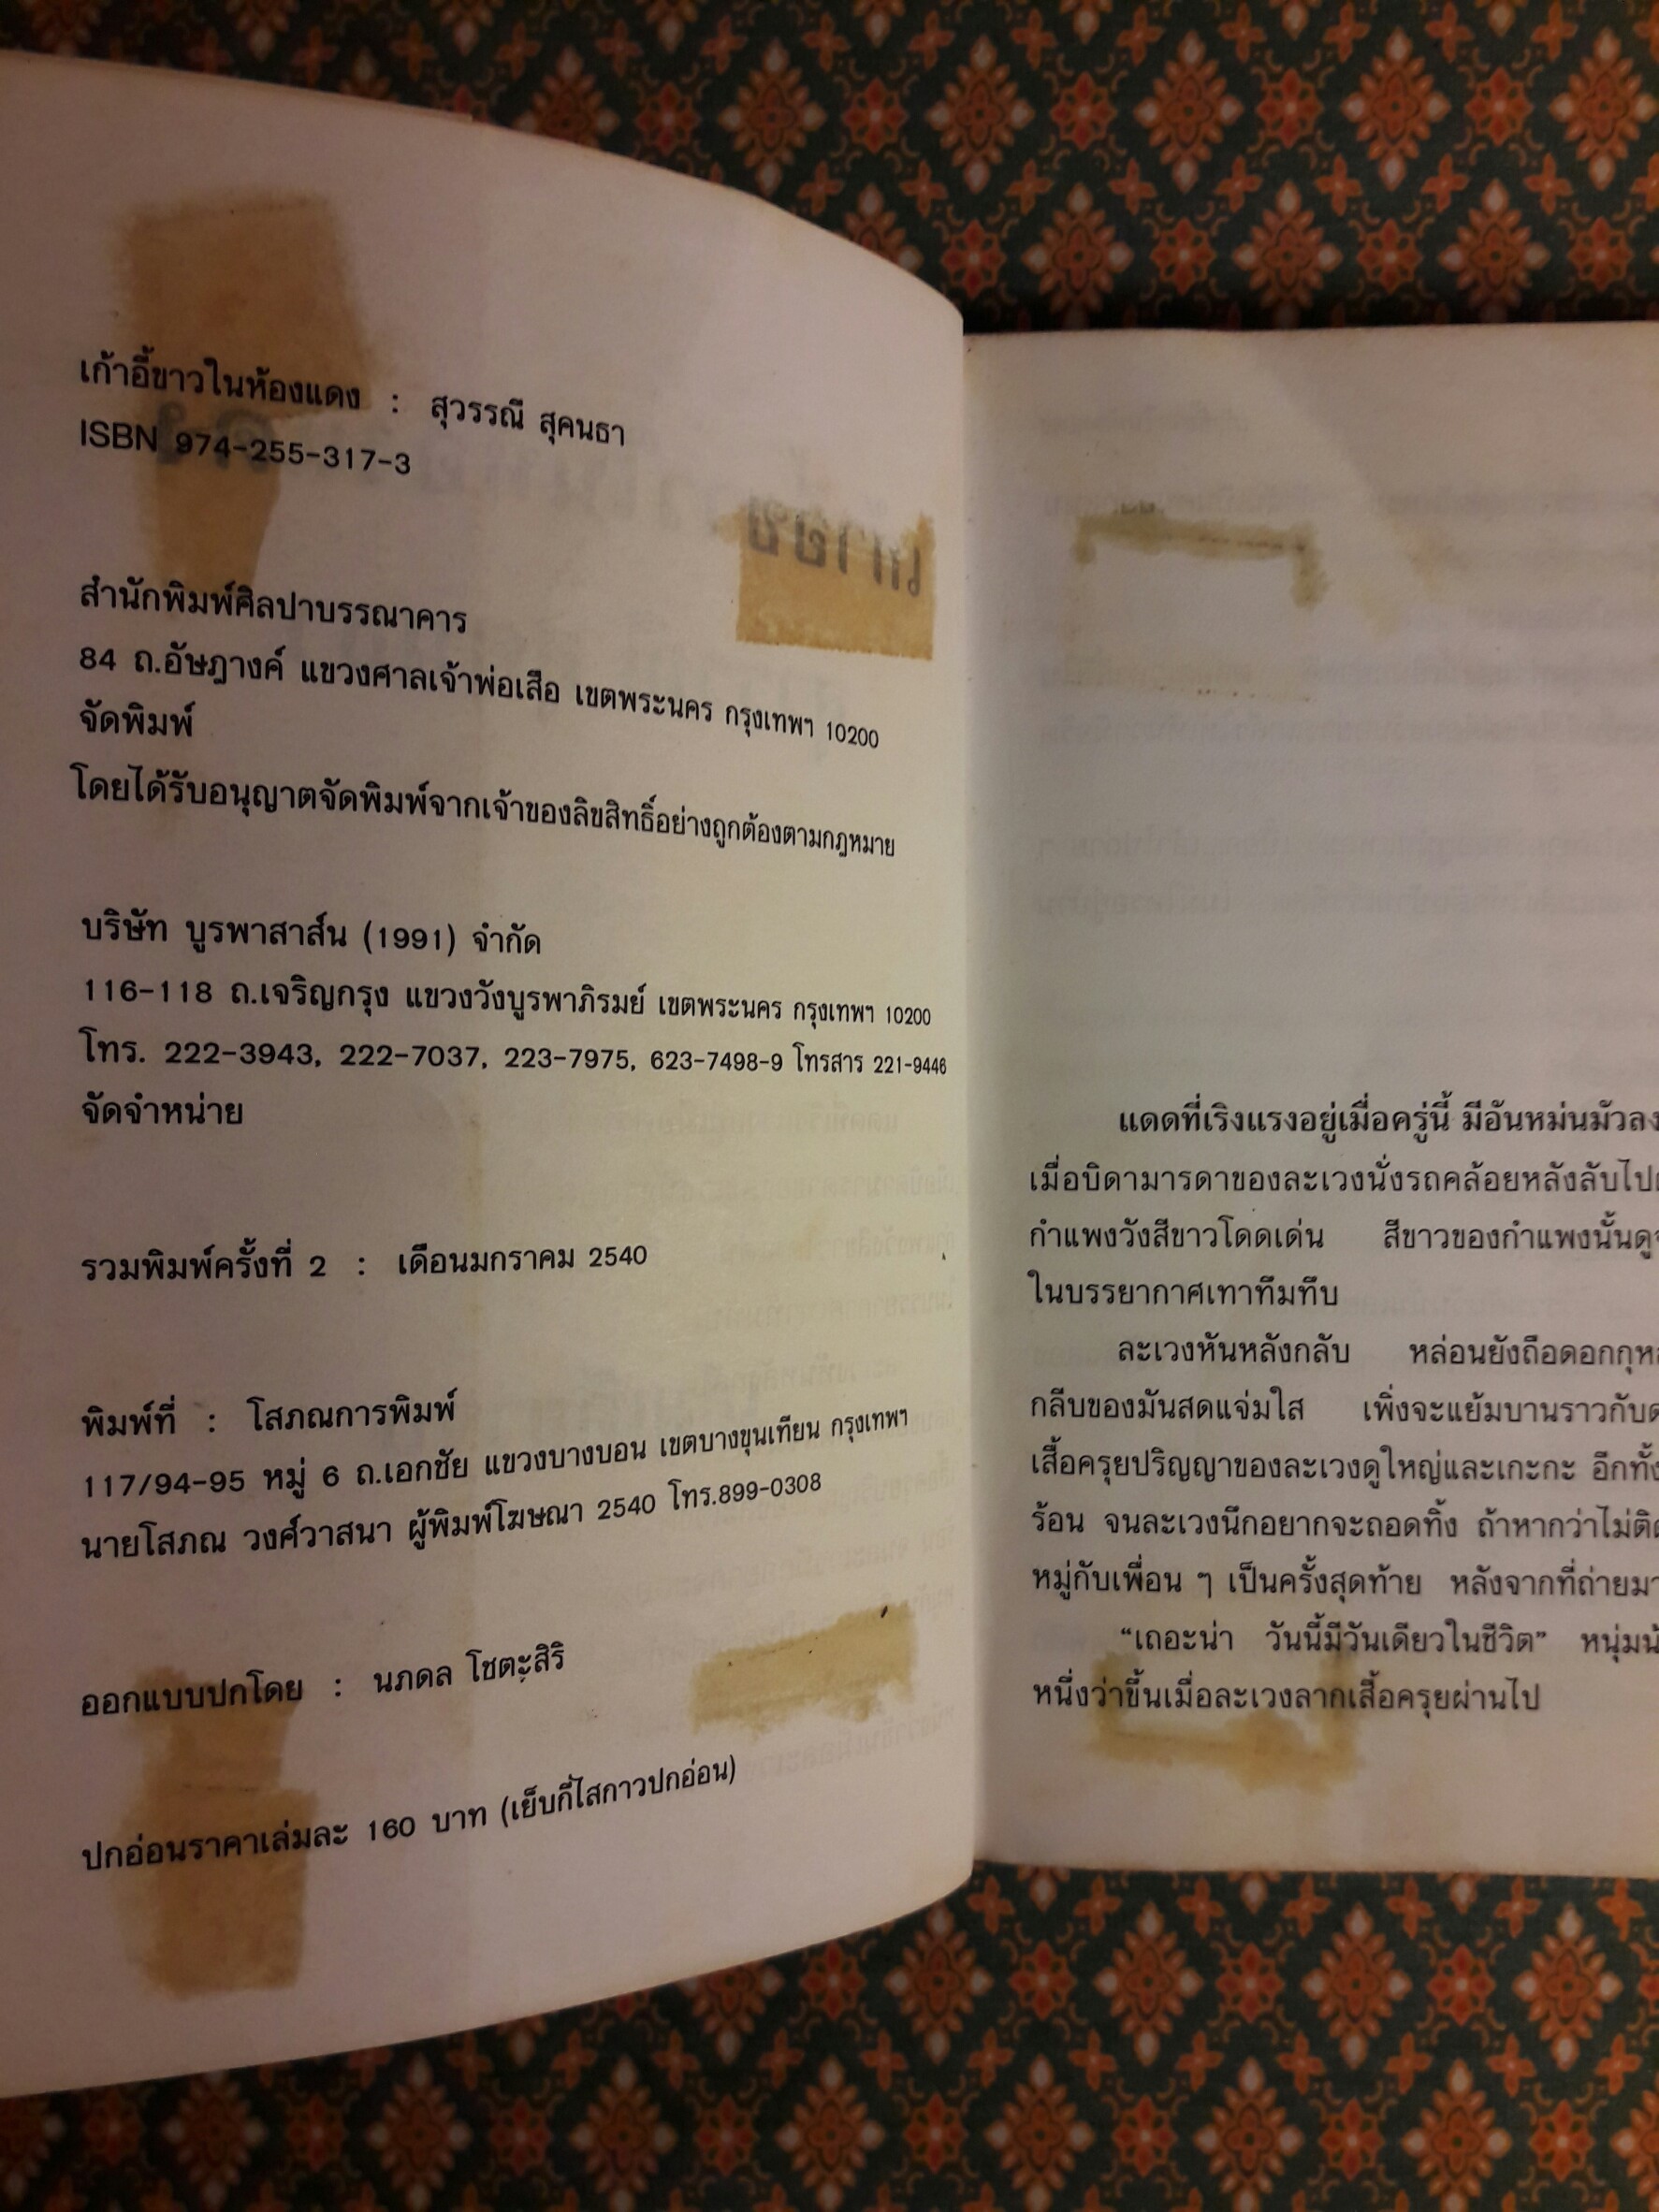 เก้าอี้ขาวในห้องแดง : สุวรรณี สุคนธา
ISBN 974-255-317-3
สำนักพิมพ์ศิลปาบรรณาคาร
84 ถ.อัษฎางค์ แขวงศาลเจ้าพ่อเสือ เขตพระนคร กรุงเทพฯ 10200
จัดพิมพ์
โดยได้รับอนุญาตจัดพิมพ์จากเจ้าของลิขสิทธิ์อย่างถูกต้องตามกฎหมาย
บริษัท บูรพาสาส์น (1991) จำกัด
116-118 ถ.เจริญกรุง แขวงวังบูรพาภิรมย์ เขตพระนคร กรุงเทพฯ 10200
โทร. 222-3943, 222-7037, 223-7975, 623-7498-9 โทรสาร 221-9446
จัดจำหน่าย
รวมพิมพ์ครั้งที่ 2 : เดือนมกราคม 2540
พิมพ์ที่ : โสภณการพิมพ์
117/94-95 หมู่ 6 ถ.เอกชัย แขวงบางบอน เขตบางขุนเทียน กรุงเทพฯ
นายโสภณ วงศ์วาสนา ผู้พิมพ์โฆษณา 2540 โทร.899-0308
ออกแบบปกโดย : นภดล โชตะสิริ
ปกอ่อนราคาเล่มละ 160 บาท (เย็บกี่ไสกาวปกอ่อน)
แดดที่เริงแรงอยู่เมื่อครู่นี้ มีอันหม่นมัวลง
เมื่อบิดามารดาของละเวงนั่งรถคล้อยหลังลับไป
กำแพงวังสีขาวโดดเด่น สีขาวของกำแพงนั้นดู
ในบรรยากาศเทาทึมทึบ
ละเวงหันหลังกลับ หล่อนยังถือดอกกุห
กลีบของมันสดแจ่มใส เพิ่งจะแย้มบานราวกับ
เสื้อครุยปริญญาของละเวงดูใหญ่และเกะกะ อีกทั้ง
ร้อน จนละเวงนึกอยากจะถอดทิ้ง ถ้าหากว่าไม่ติด
หมู่กับเพื่อน ๆ เป็นครั้งสุดท้าย หลังจากที่ถ่ายมา
“เถอะน่า วันนี้มีวันเดียวในชีวิต” หนุ่ม
หนึ่งว่าขึ้นเมื่อละเวงลากเสื้อครุยผ่านไป